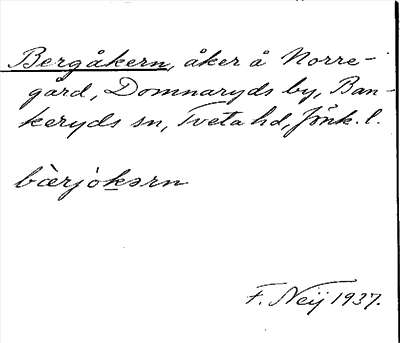 Bergåkern, åker å Norre-
gård, Domnaryds by, Ban-
keryds sn, Tveta hd, Jönk. l.
bàrjokərn
F. Neij 1937.